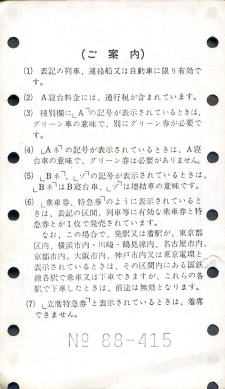 (ご案内)
(1) 表記の列車、連絡船又は自動車に限り有効です。
(2) A寝台料金には、通行税が含まれています。
(3) 種別欄に「A」の記号が表示されているときは、グリーン車の意味で、別にグリーン券が必要です。
(4) 「Aネ」の記号が表示されているときは、A寝台車の意味で、グリーン券は必要がありません。
(5) 「Bネ」、「ゾ」の記号が表示されているときは、「Bネ」はB寝台車、「ゾ」は増結車の意味です。
(6) 「乗車券、特急券」のように表示されているときは、表記の区間、列車等に有効な乗車券と特急券とが1枚で発売されています。
なお、この場合で、発駅又は着駅が、東京都区内、横浜市内・川崎・鶴見線内、名古屋市内、京都市内、大阪市内、神戸市内又は東京電環と表示されているときは、その区間内にある国鉄線各駅で乗車又は下車できますが、これらの各駅で下車したときは、前途は無効となります。
(7) 「立席特急券」と表示されているときは、着席できません。
№ 88-415